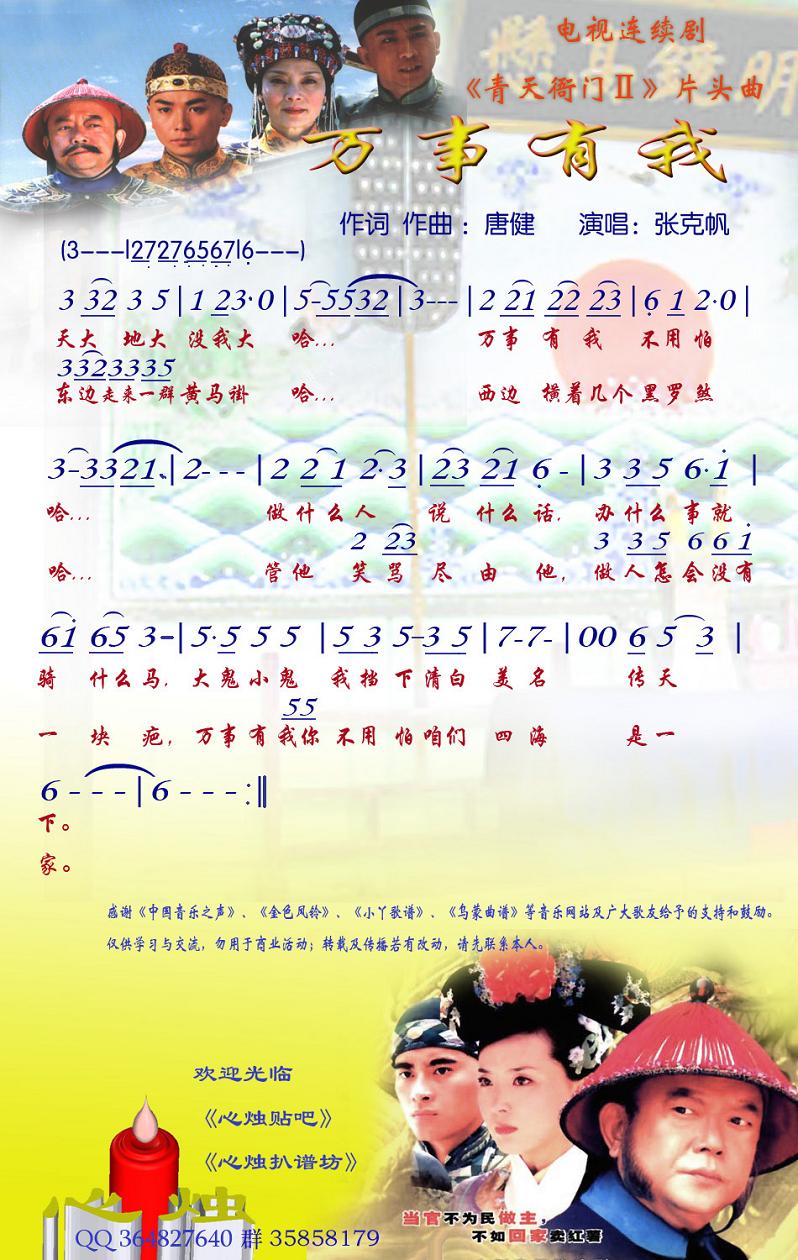 明鏡高懸
电视连续剧
《青天衙门Ⅱ》片头曲
万事有我
作词 作曲：唐健 演唱：张克帆
(3---|27276567|6---)
3 32 3 5 | 1 23·0 | 5-5532 | 3--- | 2 21 22 23 | 6 1 2·0 |
天大 地大 没我大 哈... 万事 有 我 不用 怕
3323335
东边走来一群黄马褂 哈... 西边 横着几个黑罗煞
3-3321. | 2--- | 2 2 1 2·3 | 23 21 6 - | 3 3 5 6·1 |
哈... 做什么人 说 什么话, 办什么 事就
2 23 3 3 5 6 6 1
哈... 管他 笑骂 尽 由 他, 做人怎会没有
61 65 3- | 5·5 5 5 | 5 3 5-3 5 | 7-7- | 00 6 5 3 |
骑 什么马, 大鬼小鬼 我挡下清白 美名 传天
55
一 块 疤, 万事有我你不用怕咱们 四海 是一
6 - - - | 6 - - - :‖
下。
家。
感谢《中国音乐之声》、《金色风铃》、《小丫歌谱》、《乌蒙曲谱》等音乐网站及广大歌友给予的支持和鼓励。
仅供学习与交流，勿用于商业活动；转载及传播若有改动，请先联系本人。
欢迎光临
《心烛贴吧》
《心烛扒谱坊》
心烛
QQ 364827640 群 35858179
当官不为民做主，
不如回家卖红薯